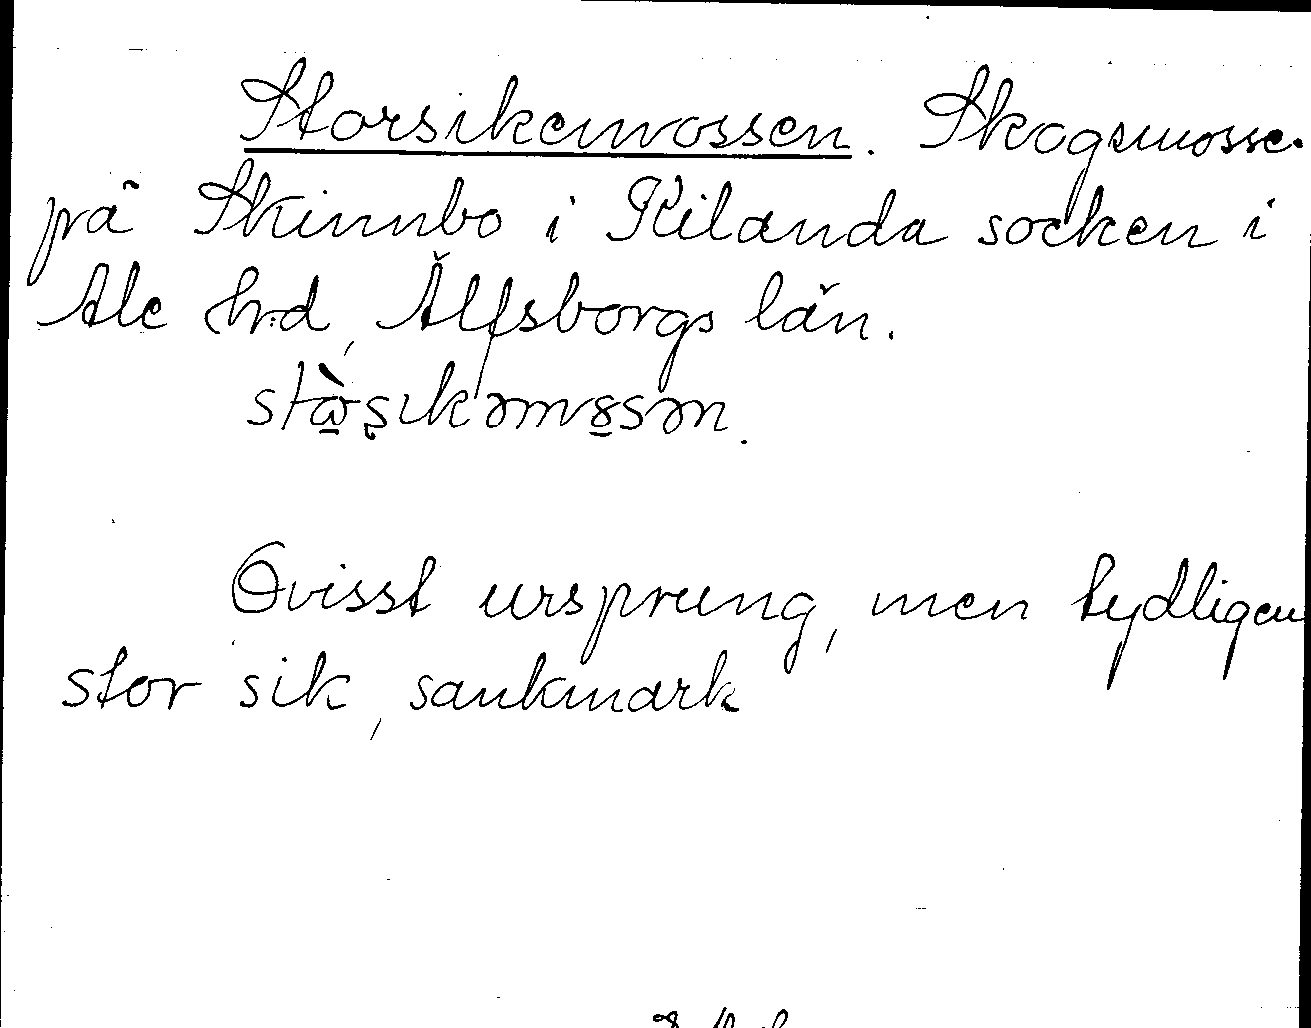 Storsikemossen. Skogsmosse
på Skinnbo i Kilanda socken i
Ale hrd, Älfsborgs län.
stɷ̀ṣıkəmɤssən.
Ovisst ursprung, men tydligen
stor sik, sankmark